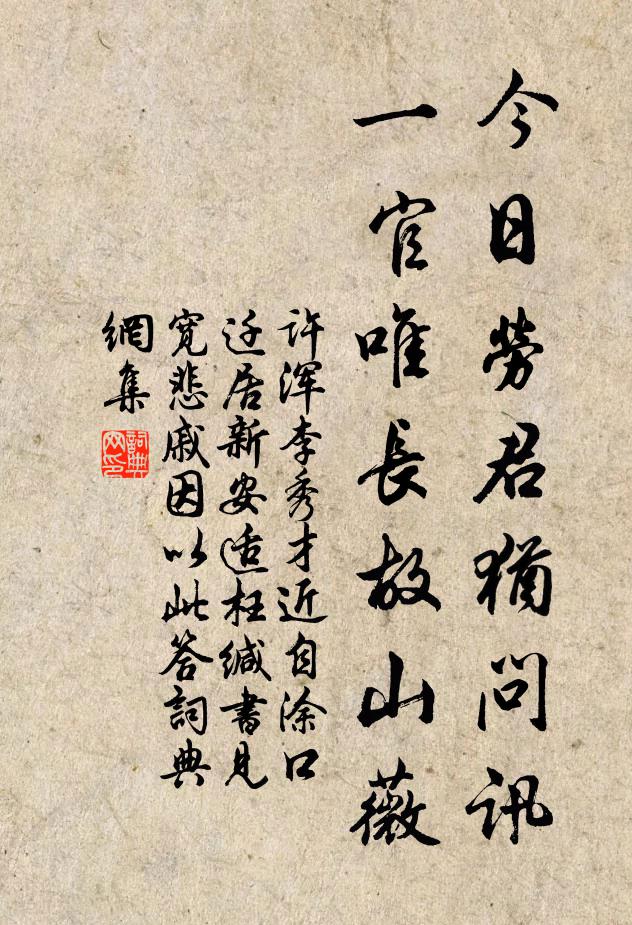 今日勞君猶問訊
一官唯長故山薇
许浑李秀才近自涂口
迁居新安适枉缄書見
寬悲戚因以此答詞典
網集
詞典
网印